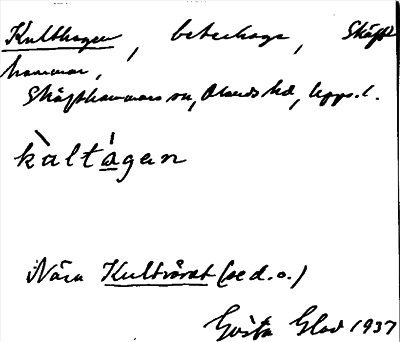 Kulthagen, beteshage, Skäft
hammar,
Skäfthammars sn, Olands hd, Upps. l.
kàltágan
Nära Kultvåret (se d. o.)
Gösta Glad 1937